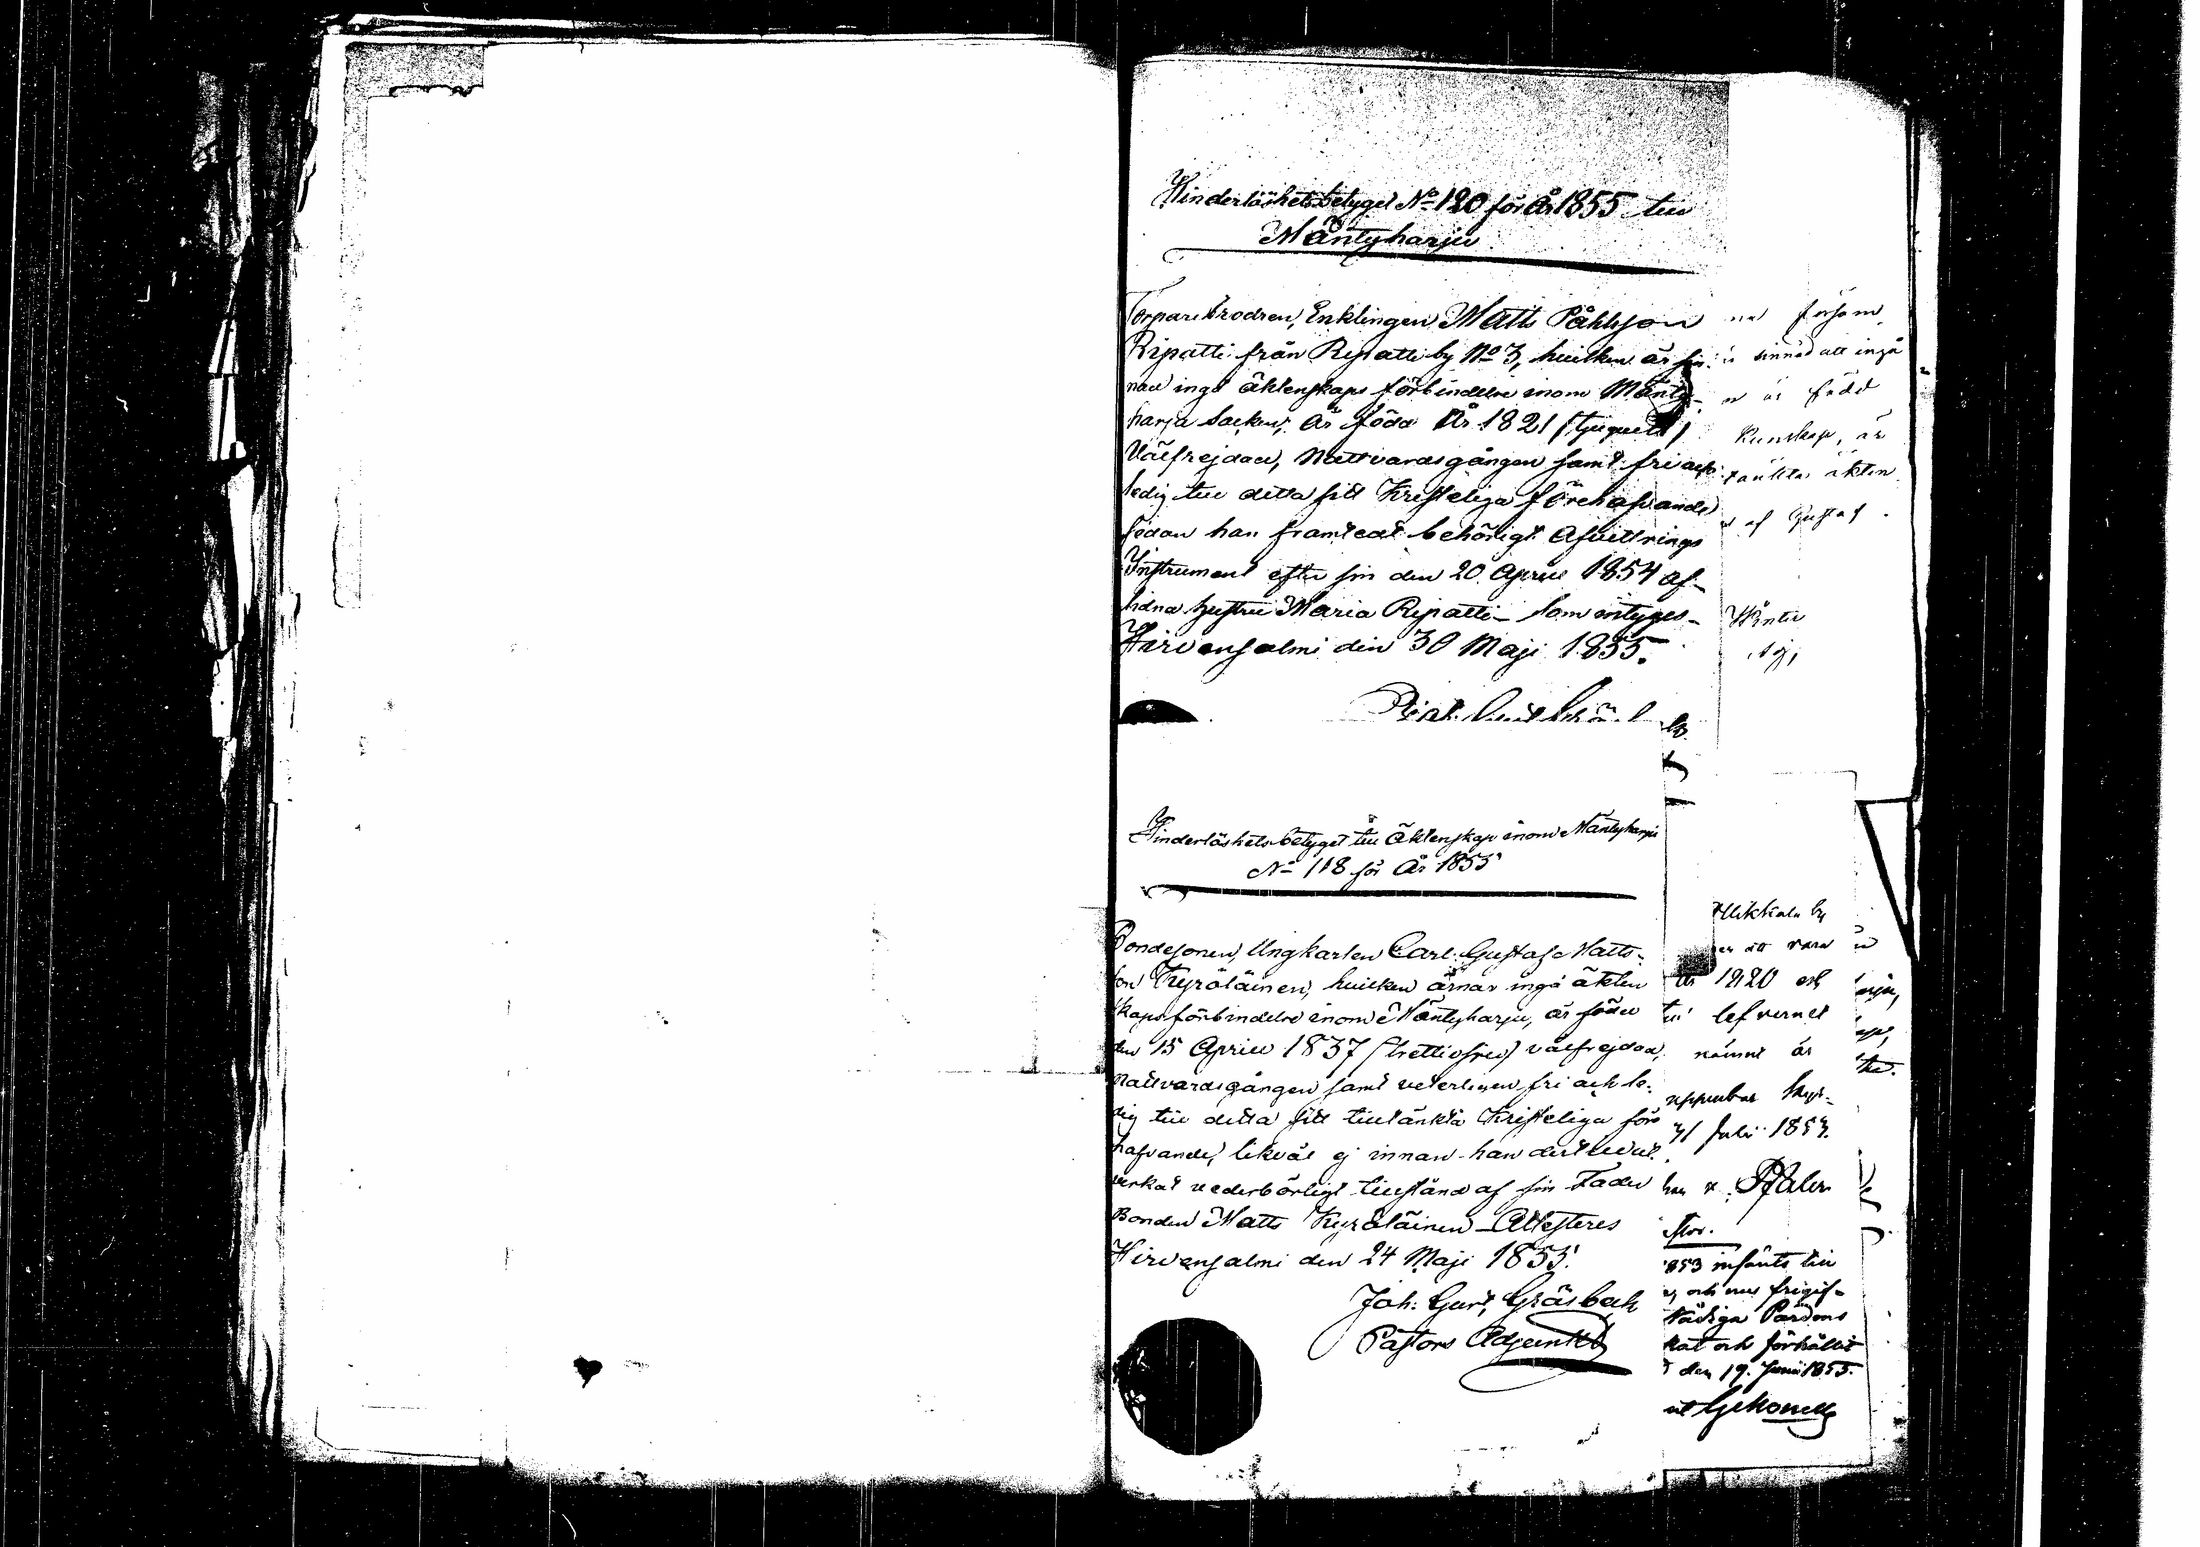 Hinderlöshetsbetyget No 120 för År 1855 till
Mäntyharju
Torparebrodren, Enklingen Matts Påhlsson
Ripatti från Ripatti by No 3, hvilken är sin-
nad ingå äktenskaps förbindelse inom Mänty-
harju Socken, är född År 1821 (tjuguett)
Välfrejdad, Nattvardsgången samt fri och
ledig till detta sitt Kristeliga förehafvande
sedan han framtedt behörigt Afvittrings
Instrument efter sin den 20 April 1854 af-
lidna hustru Maria Ripatti - Som intygas -
Hirvensalmi den 30 Maji 1855.
Hinderlöshetsbetyget till Äktenskap inom Mäntyharju
No 118 för År 1855
Bondesonen, Ungkarlen Carl Gustaf Matts-
son Kyröläinen, hvilken ärnar ingå äkten
skaps förbindelse inom Mäntyharju, är född
den 15 April 1837 (trettiosju) välfrejdad,
nattvardsgången samt veterligen fri och le-
dig till detta sitt tilltänkta Kristeliga före
hafvande, likväl ej innan han dertill ut-
verkat vederbörligt tillstånd af sin Fader
Bonden Matts Kyröläinen - Attesteres
Hirvensalmi den 24 Maji 1855.
Joh: Gust. Gråsbeck
Pastors Adjunkt
sinnad att ingå
är född
Kunskap, är
äkten
af Gustaf
Mikkala by
att vara
År 1820 och
lefvernet
nämnt är
31 Juli 1853.
1853 införts till
och nus frigif-
nådiga Pardons
kat och förhållit
den 19. Junii 1855.